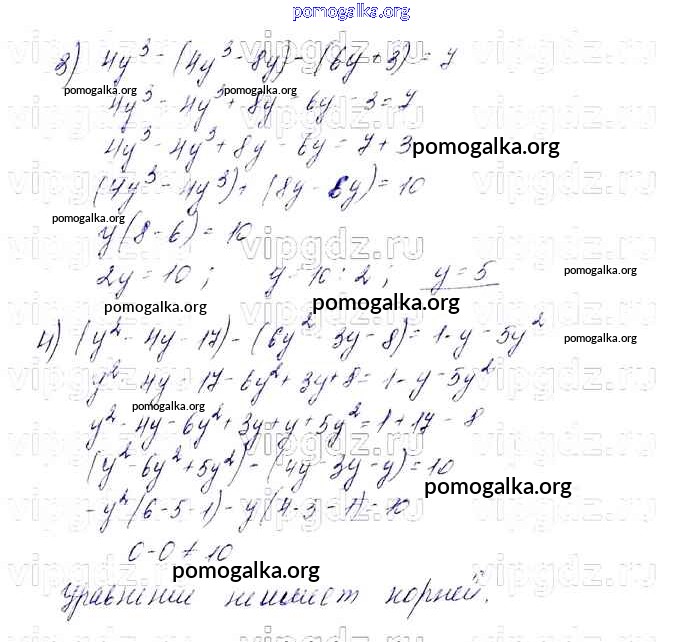 pomogalka.org
3) 4y³ - (4y³ - 8y) - (6y + 3) = 7
pomogalka.org pomogalka.org
4y³ - 4y³ + 8y - 6y - 3 = 7
4y³ - 4y³ + 8y - 6y = 7 + 3 pomogalka.org
(4y³ - 4y³) + (8y - 6y) = 10
pomogalka.org
y(8 - 6) = 10
vipgdz.ru
2y = 10 ; y = 10 : 2 ; y = 5 pomogalka.org
pomogalka.org pomogalka.org
4) (y² - 4y - 17) - (6y² - 3y - 8) = 1 - y - 5y²
pomogalka.org
y² - 4y - 17 - 6y² + 3y + 8 = 1 - y - 5y²
pomogalka.org
y² - 4y - 6y² + 3y + y + 5y² = 1 + 17 - 8
(y² - 6y² + 5y²) - (4y - 3y - y) = 10
pomogalka.org
-y²(6 - 5 - 1) - y(4 - 3 - 1) = 10
0 - 0 ≠ 10
pomogalka.org
Уравнение не имеет корней.